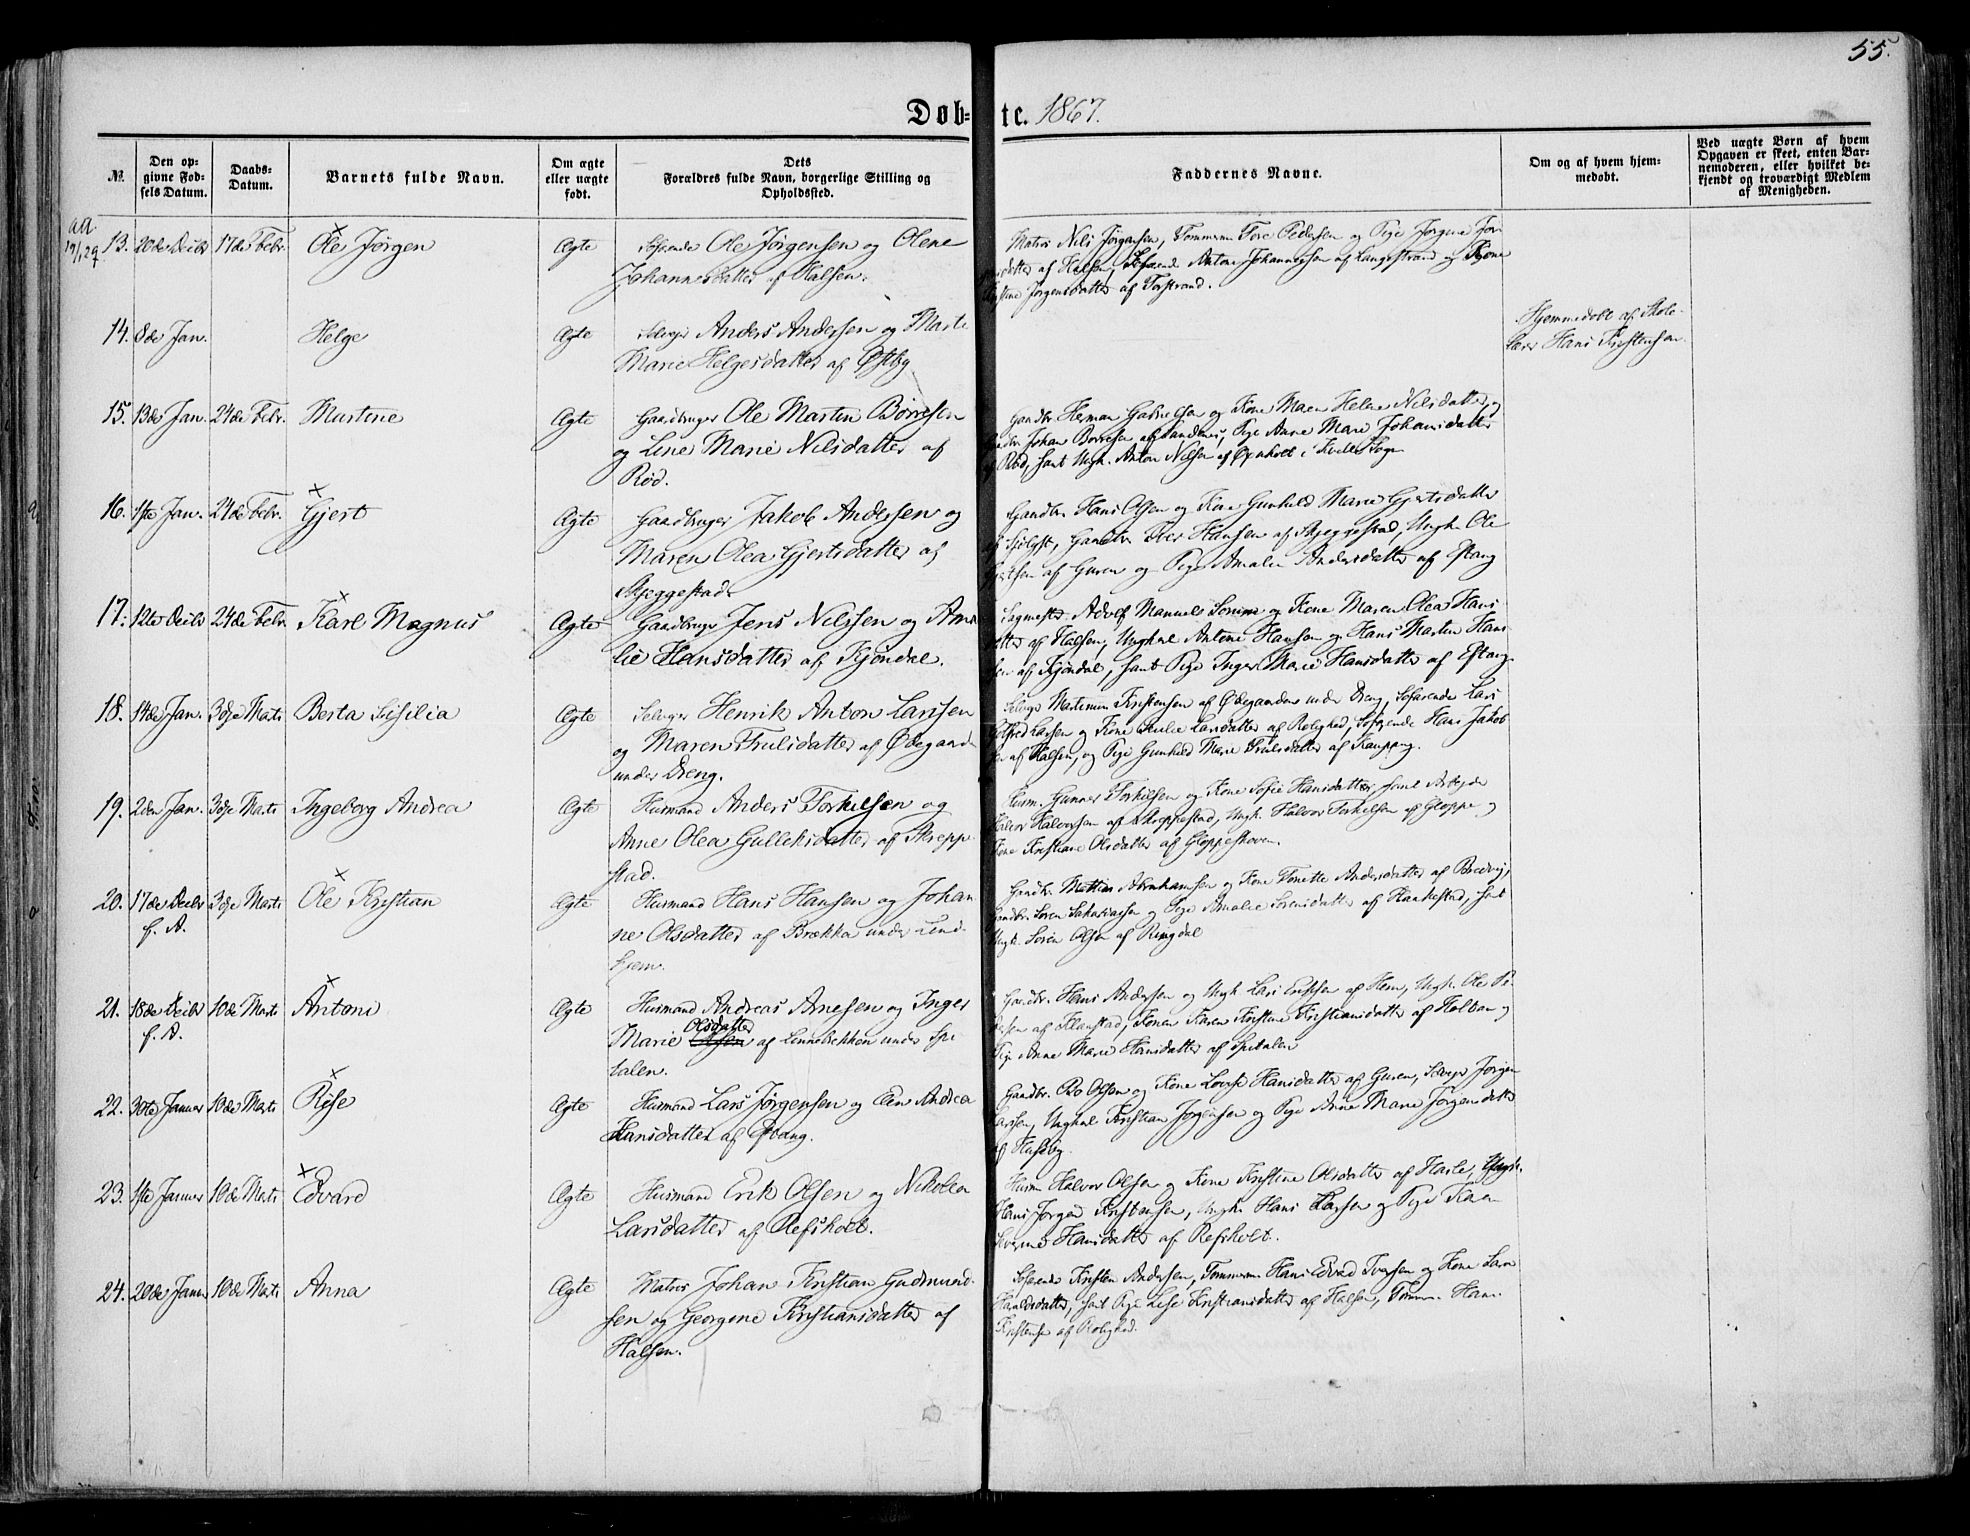 55.
Døb= te. 1867.
№.
Den opgivne Fødsels Datum.
Daabs-Datum.
Barnets fulde Navn.
Om ægte eller uægte født.
Dets Forældres fulde Navn, borgerlige Stilling og Opholdssted.
Faddernes Navne.
Om og af hvem hjemmedøbt.
Ved uægte Børn af hvem Opgaven er skeet, enten Barnemoderen, eller hvilket bekjendt og troværdigt Medlem af Menigheden.
13. 20de Decbr 17de Febr. Ole Jørgen Ægte Søfarende Ole Jørgensen og Olene
Johannesdatter af Halsen.
Matros Nils Jørgensen, Tømmerm Tore Pedersen og Pige Jørgine
datter af Halsen, Søfarende Anton Johannessen af Langestrand og Kone
Jørgensdatter af Torstrand.
14. 8de Jan. Helge Ægte Selveier Anders Andersen og Marte
Marie Helgesdatter af Østby
Hjemmedøbt af Skole-
lærer Hans Kristensen
15. 13de Jan. 24de Febr. Martine Ægte Gaardbruger Ole Martin Børresen
og Line Marie Nilsdatter af
Rød.
Gaardbr. Herman Gabrielsen og Kone Maren Helene Nilsdatter, og
Johan Børresen af Sandenes, Pige Anne Marie Johansdatter
Rød, samt Ungk. Anton Nilsen af i Kvelle Sogn
16. 1ste Jan. 24de Febr. Gjert Ægte Gaardbruger Jakob Andersen og
Maren Olea Gjertsdatter af
Skjeggestad.
Gaardbr. Hans Olsen og Kone Gunhild Marie Gjertsdatter
Gaardbr. Peer Hansen af Skjeggestad, Ungk. Ole
Gjertsen af Guren og Pige Amalie Andersdatter af Østang
17. 12te Decbr 24de Febr. Karl Magnus Ægte Gaardbruger Jens Nilssen og Ama
lie Hansdatter af Kjøndal.
Sagmester Adolf Manuel og Kone Maren Olea Hans
datter af Halsen, Ungkarl Antone Hansen og Hans Martin Hans
sen af Kjøndal, samt Pige Inger Marie Hansdatter af Østang
18. 14de Jan. 3die Marts Berta Sisilia Ægte Selveier Henrik Anton Larssen
og Maren Trulsdatter af Ødegaarden
under Dreng.
Selveier Martinius Kristensen af Ødegaarden under Dreng, Søfarende Lars
Larsen og Kone Julie Larsdatter af Rolighed, Søfarende Hans Jakob
af Halsen, og Pige Gunhild Marie Trulsdatter af Kaupang.
19. 2den Jan. 3die Marts Ingeborg Andrea Ægte Husmand Anders Torkelsen og
Anne Olea Gulliksdatter af Skreppe
stad.
Husm. Gunner Torkilsen og Kone Sofie Hansdatter, samt Arbeider
Halvor Halvorsen af Skreppestad, Ungk. Halvor Torkelsen af Gloppe og
Kone Kristiane Olsdatter af Gloppeskoven.
20. 17de Decbr f. A. 3die Marts Ole Kristian Ægte Husmand Hans Hansen og Johan
ne Olsdatter af Brækka under Lind-
hjem.
Gaardbr. Mattias Abrahamsen og Kone Tonette Andersdatter af Bredvig,
Gaardbr. Søren Sakariasen og Pige Amalie Sørensdatter af Haukestad, samt
Ungk. Søren Olsen af Ringdal
21. 18de Decbr f. A. 10de Marts Antoni Ægte Husmand Andreas Arnesen og Inger
Marie Olsdatter af Linnebækken under Spi
talen.
Gaardbr. Hans Andersen og Ungk. Lars Eriksen af Hem, Ungk. Ole
af Klaustad, Konen Karen Kristine Kristiansdatter af Holtan og
Pige Anne Marie Hansdatter af Spitalen
22. 30te Januar 10de Marts Rise Ægte Husmand Lars Jørgensen og Elen Andrea
Hansdatter af Østang.
Gaardbr. Bo Olsen og Kone Lovise Hansdatter af Guren, Selveier Jørgen
Larsen, Ungkarl Kristian Jørgensen og Pige Anne Marie Jørgensdatter
af Huseby
23. 1ste Januar 10de Marts Edvard Ægte Husmand Erik Olsen og Nikolea
Larsdatter af Refsholt.
Husm Halvor Olsen og Kone Kristine Olsdatter af Hasle, Ungk.
Hans Jørgen Kristensen, Ungk. Hans Larsen og Pige Karen
Hansdatter af Refsholt.
24. 20de Januar 10de Marts Anna Ægte Matros Johan Kristian Gudmund-
sen og Georgine Kristiansdatter af
Halsen.
Søfarende Kristen Andersen, Tømmerm Hans Edvard Iversen og Kone
Haraldsdatter, samt Pige Lise Kristiansdatter af Halsen, Tømm. Hans
Kristensen af Rolighed.